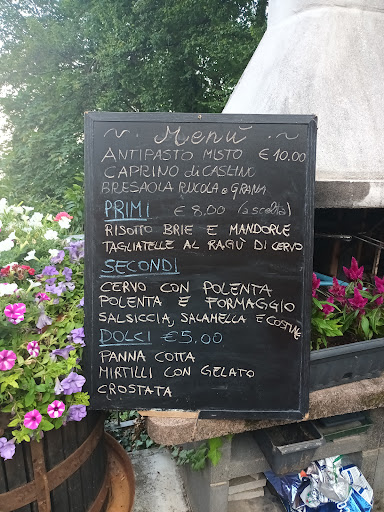 ~ Menu ~
ANTIPASTO MISTO €10.00
CAPRINO di CASLINO
BRESAOLA RUCOLA e GRANA
PRIMI € 8,00 (a scelta)
RISOTTO BRIE E MANDORLE
TAGLIATELLE AL RAGÙ DI CERVO
SECONDI
CERVO CON POLENTA
POLENTA E FORMAGGIO
SALSICCIA, SALAMELLA E COSTINE
DOLCI €5,00
PANNA COTTA
MIRTILLI CON GELATO
CROSTATA